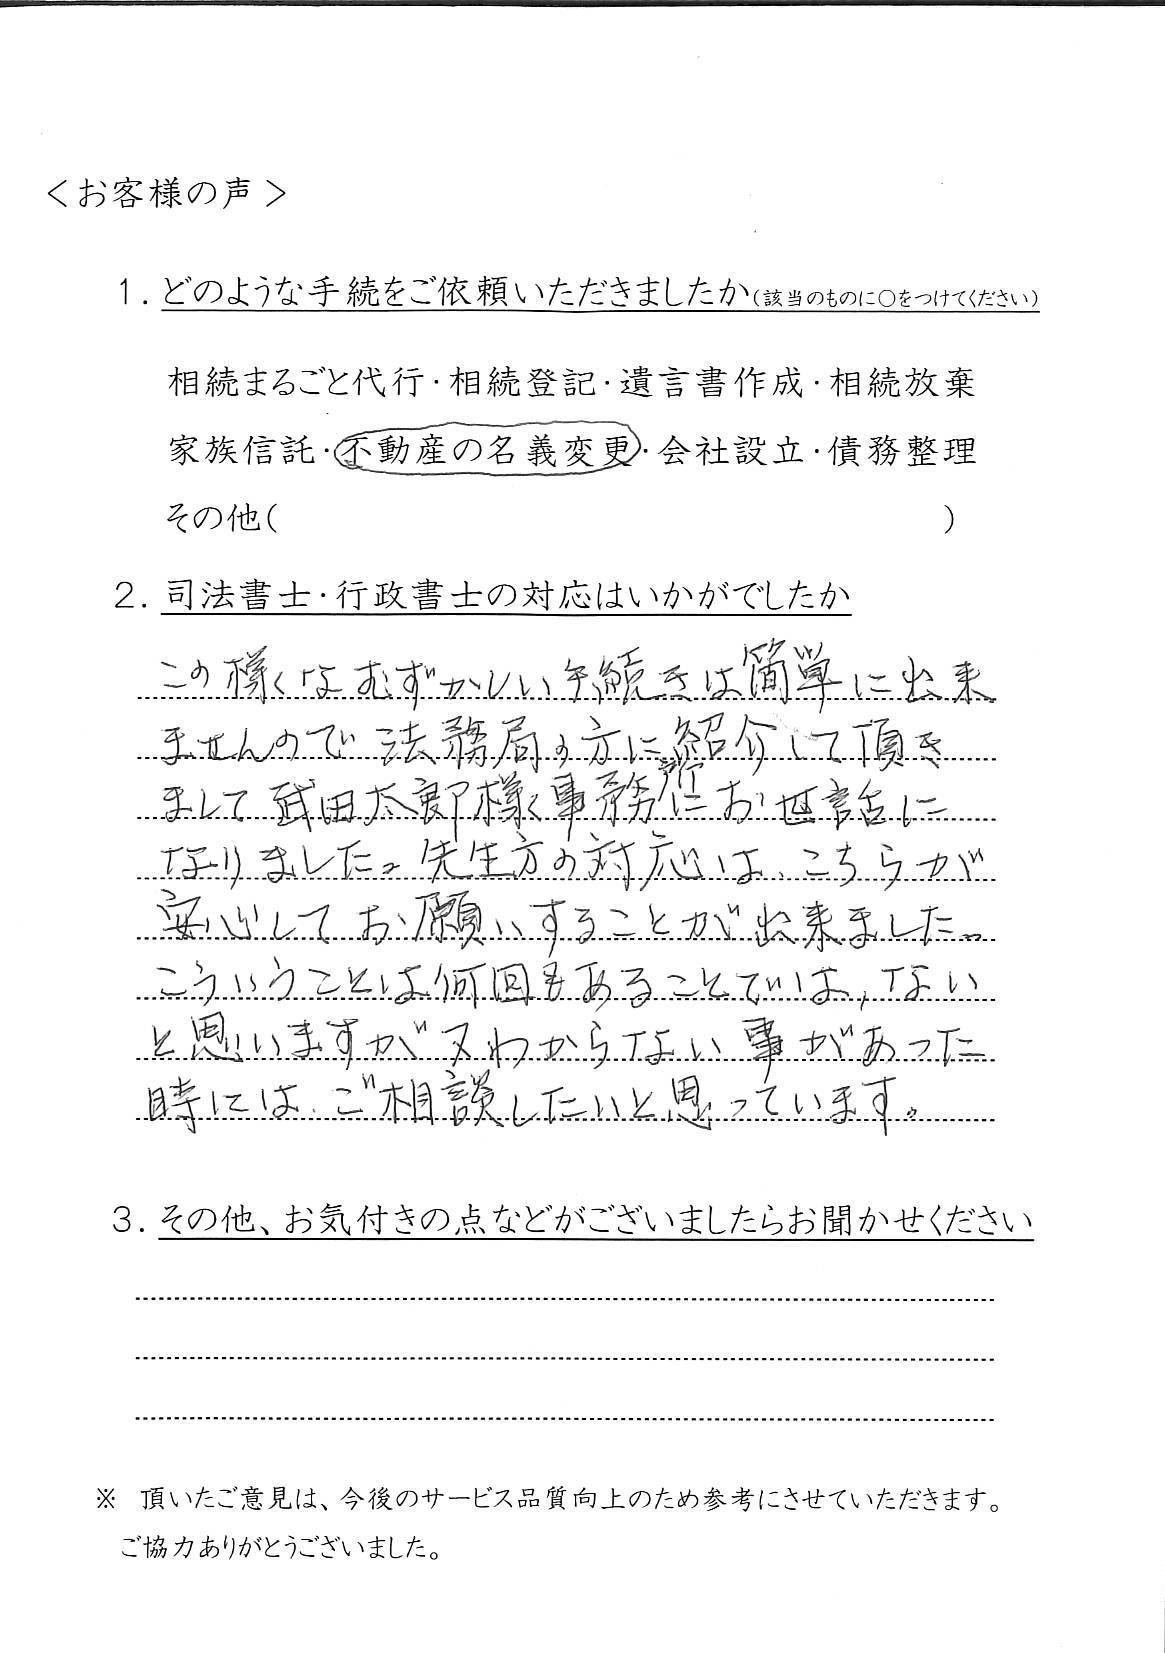 ＜お客様の声＞
1. どのような手続をご依頼いただきましたか(該当のものに○をつけてください)
相続まるごと代行・相続登記・遺言書作成・相続放棄
家族信託・不動産の名義変更・会社設立・債務整理
その他(　　　　　　　　　　　　　　　　　　)
2. 司法書士・行政書士の対応はいかがでしたか
この様なむずかしい手続きは簡単に出来
ませんので法務局の方に紹介して頂き
まして武田太郎様事務所にお世話に
なりました。先生方の対応は、こちらが
安心してお願いすることが出来ました。
こういうことは何回もあることでは、ない
と思いますが又わからない事があった
時には、ご相談したいと思っています。
3. その他、お気付きの点などがございましたらお聞かせください
※　頂いたご意見は、今後のサービス品質向上のため参考にさせていただきます。
ご協力ありがとうございました。